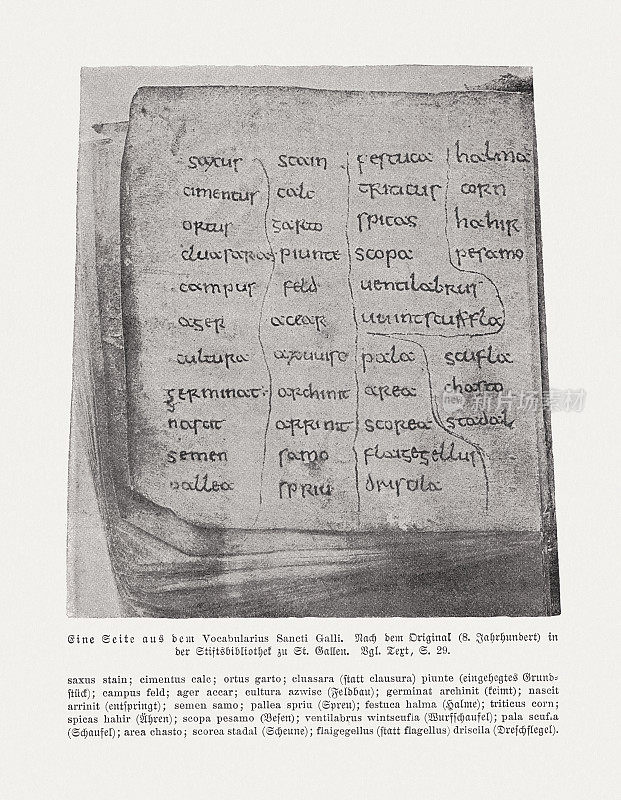 saxus stain festuca halma
cimentus calc triticus corn
ortus garto spicas hahir
cluasara piunte scopa pesamo
campus feld uentilabrus
ager accar uuintscuffla
cultura azuuisc pala scufla
germinat archinit area chasto
nascit arrinit scorea stadal
semen samo flaigegellus
pallea spriu driscila
Eine Seite aus dem Vocabularius Sancti Galli. Nach dem Original (8. Jahrhundert) in
der Stiftsbibliothek zu St. Gallen. Vgl. Text, S. 29.
saxus stain; cimentus calc; ortus garto; cluasara (statt clausura) piunte (eingehegtes Grund-
stück); campus feld; ager accar; cultura azwisc (Feldbau); germinat archinit (keimt); nascit
arrinit (entspringt); semen samo; pallea spriu (Spreu); festuca halma (Halme); triticus corn;
spicas hahir (Ähren); scopa pesamo (Besen); ventilabrus wintscufla (Wurfschaufel); pala scuf.a
(Schaufel); area chasto; scorea stadal (Scheune); flaigegellus (statt flagellus) driscila (Dreschflegel).